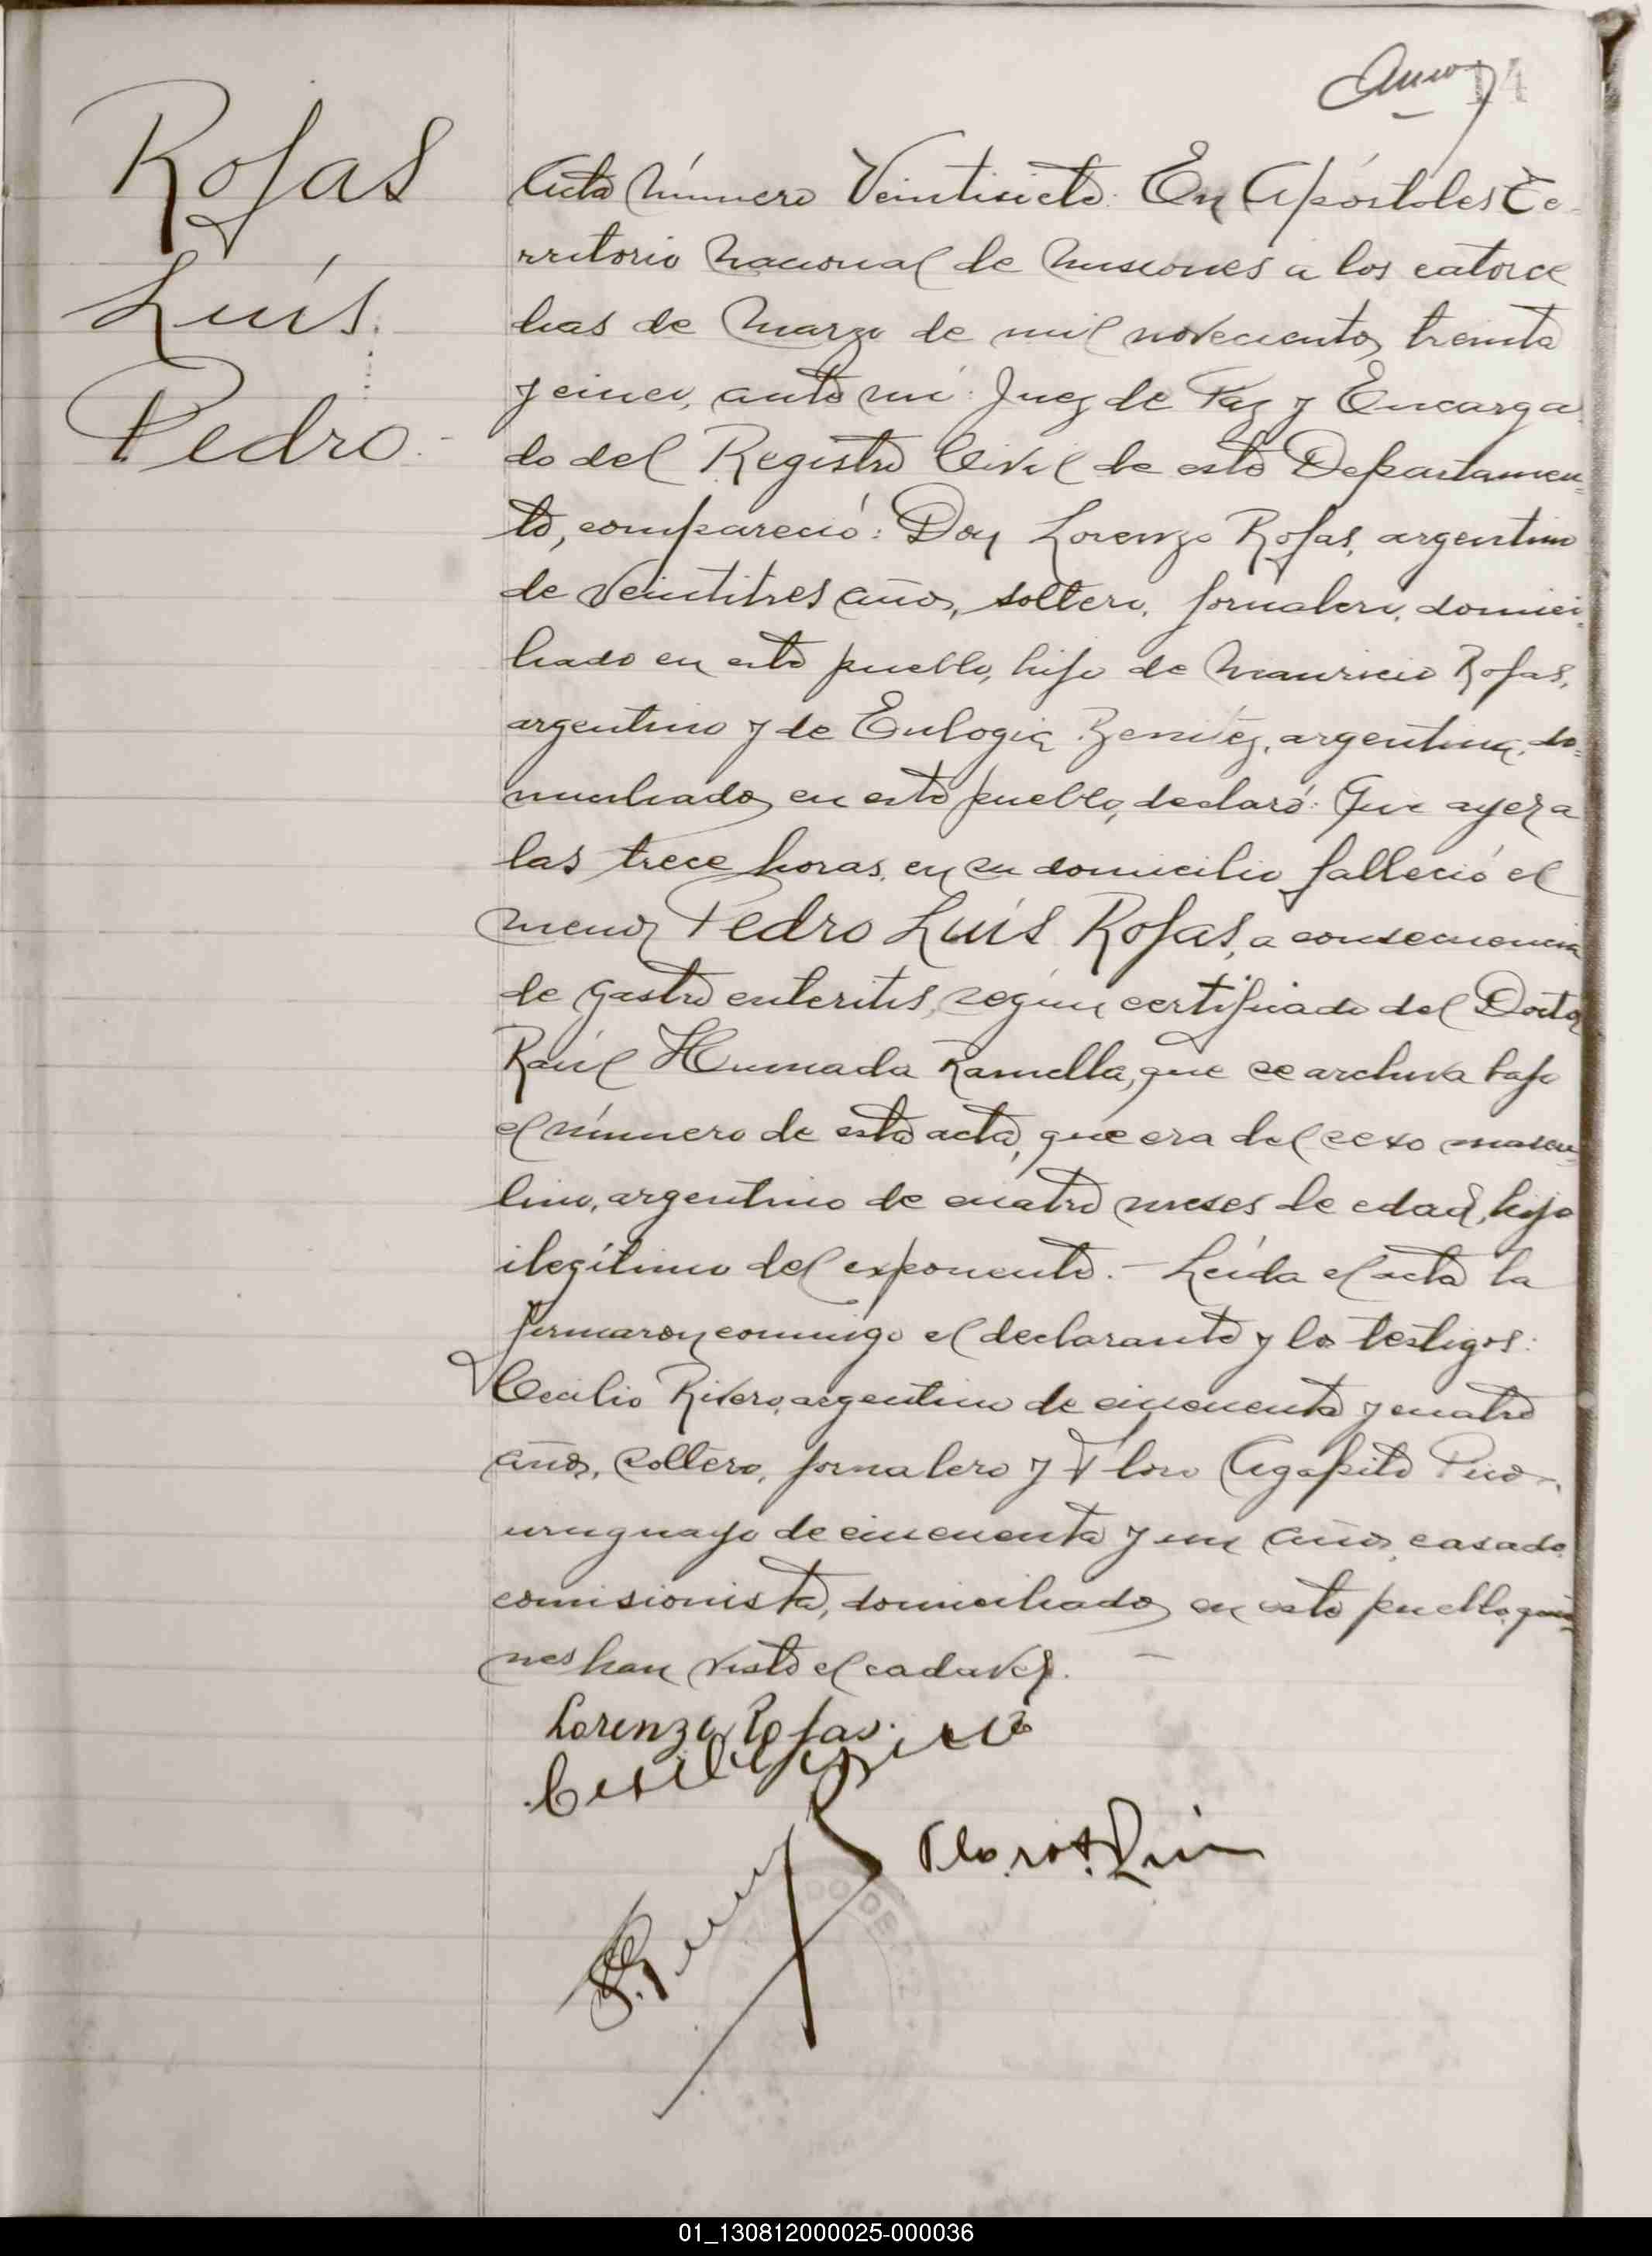 14
Rojas
Luís
Pedro.
Acta Número Veintisiete: En Apóstoles Te-
rritorio Nacional de Misiones a los catorce
dias de Marzo de mil novecientos treinta
y cinco, ante mí: Juez de Paz y Encarga
do del Registro Civil de este Departamen-
to, compareció: Don Lorenzo Rojas, argentino
de veintitres años, soltero, jornalero, domici-
liado en este pueblo, hijo de Mauricio Rojas,
argentino y de Eulogia Benitez, argentina, do-
miciliados en este pueblo, declaró: Que ayer a
las trece horas, en su domicilio falleció el
menor Pedro Luís Rojas, a consecuencia
de gastro enteritis, según certificado del Doctor
Raúl Humada Ramella, que se archiva bajo
el número de esta acta, que era del sexo mascu-
lino, argentino de cuatro meses de edad, hijo
ilegítimo del exponente. - Leída el acta la
firmaron conmigo el declarante y los testigos:
Cecilio Rivero, argentino de cincuenta y cuatro
años, soltero, jornalero y Floro Agapito
uruguayo de cincuenta y un años, casado,
comisionista, domiciliados en este pueblo, quie-
nes han visto el cadaver. -
Lorenzo Rojas.
01_130812000025-000036